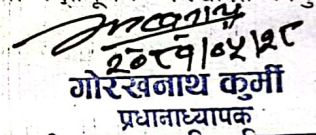 २०८१/०५/२८
गोरखनाथ कुर्मी
प्रधानाध्यापक